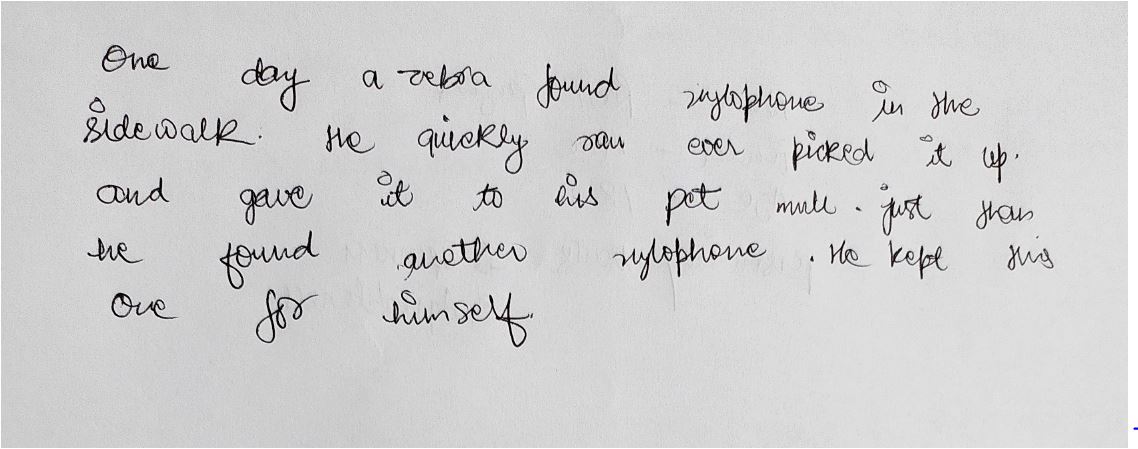 One day a zebra found xylophone in the
sidewalk. He quickly ran over picked it up.
and gave it to his pet mule. just than
he found another xylophone. He kept this
one for himself.